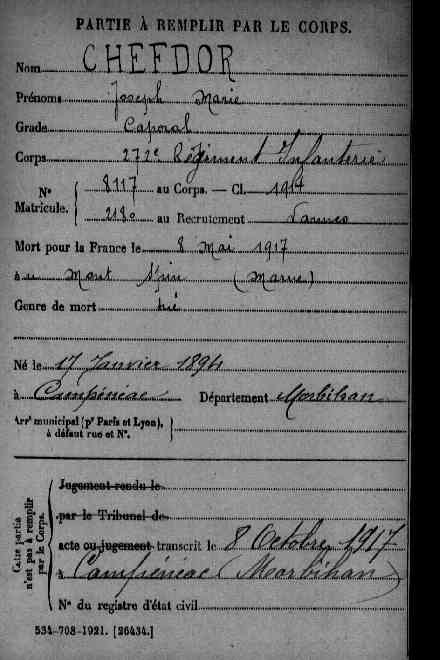 PARTIE À REMPLIR PAR LE CORPS.
Nom CHEFDOR
Prénoms Joseph Marie
Grade Caporal
Corps 272e Régiment Infanterie
N° Matricule. 8117 au Corps. — Cl. 1914
2180 au Recrutement Vannes
Mort pour la France le 8 Mai 1917
à Mont (Marne)
Genre de mort tué
Né le 17 Janvier 1894
à Campénéac Département Morbihan
Arrt municipal (pr Paris et Lyon),
à défaut rue et N°.
Cette partie n'est pas à remplir par le Corps.
Jugement rendu le
par le Tribunal de
acte ou jugement transcrit le 8 Octobre 1917
à Campénéac (Morbihan)
N° du registre d'état civil
534-708-1921. [26434.]